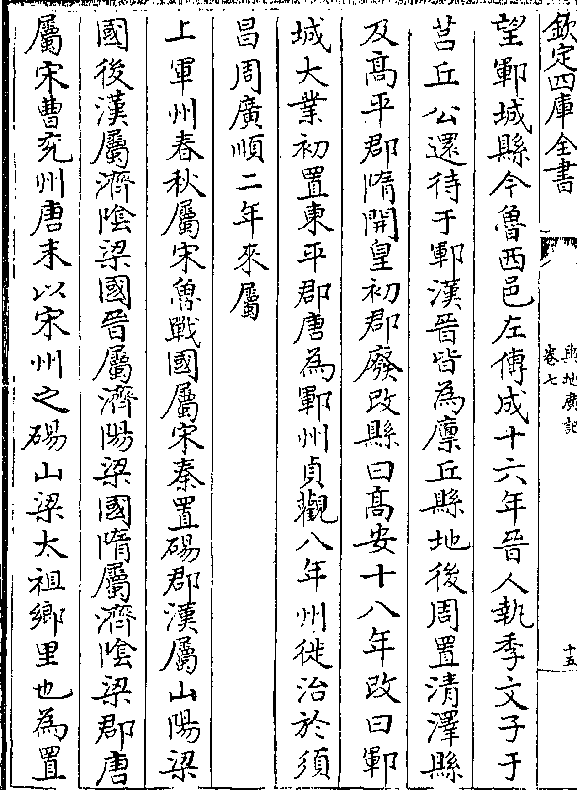 欽定四庫全書
輿地廣記
卷七
十五
望鄆城縣今魯西邑左傳成十六年晉人執季文子于
莒丘公還待于鄆漢晉皆為廪丘縣地後周置清澤縣
及髙平郡隋開皇初郡廢改縣曰髙安十八年改曰鄆
城大業初置東平郡唐為鄆州貞觀八年州徙治於須
昌周廣順二年來屬
上軍州春秋屬宋魯戰國屬宋秦置碭郡漢屬山陽梁
國後漢屬濟隂梁國晉屬濟陽梁國隋屬濟隂梁郡唐
屬宋曹兖州唐末以宋州之碭山梁太祖鄉里也為置